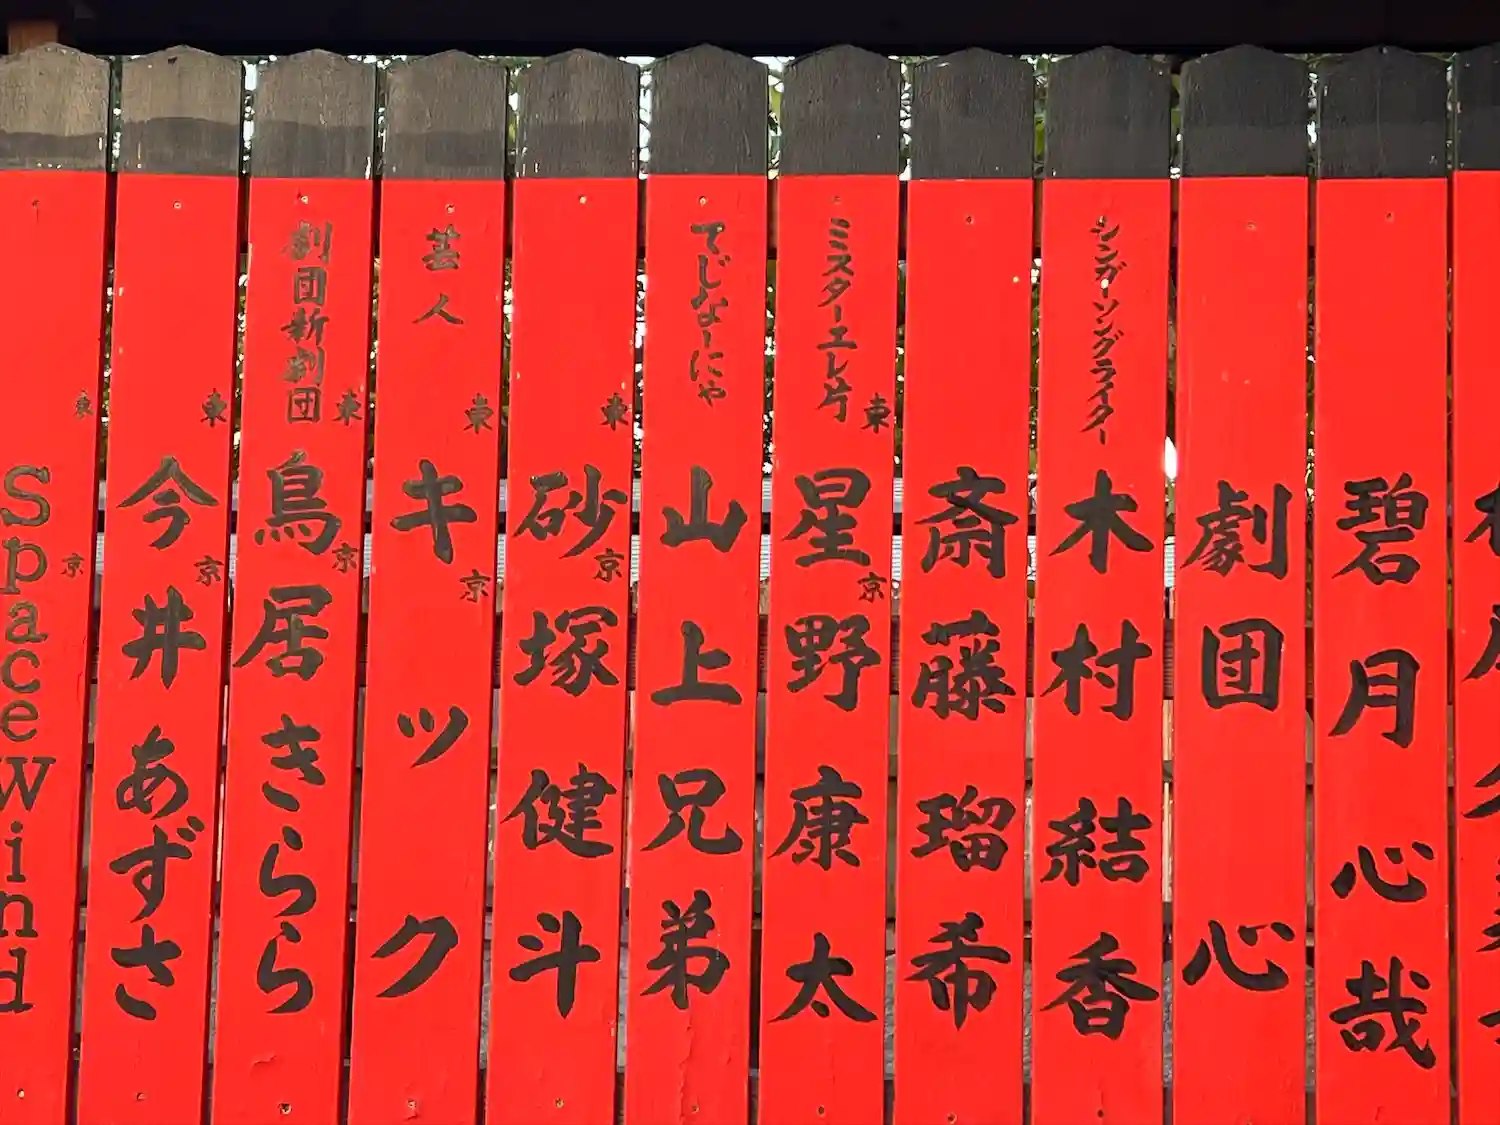 碧月心哉
劇団心
シンガーソングライター
木村結香
斎藤瑠希
ミスターエレ片
東京
星野康太
てじなーにゃ
山上兄弟
東京
砂塚健斗
芸人
東京
キック
劇団新劇団
東京
鳥居きらら
東京
今井あずさ
東京
Spacewind